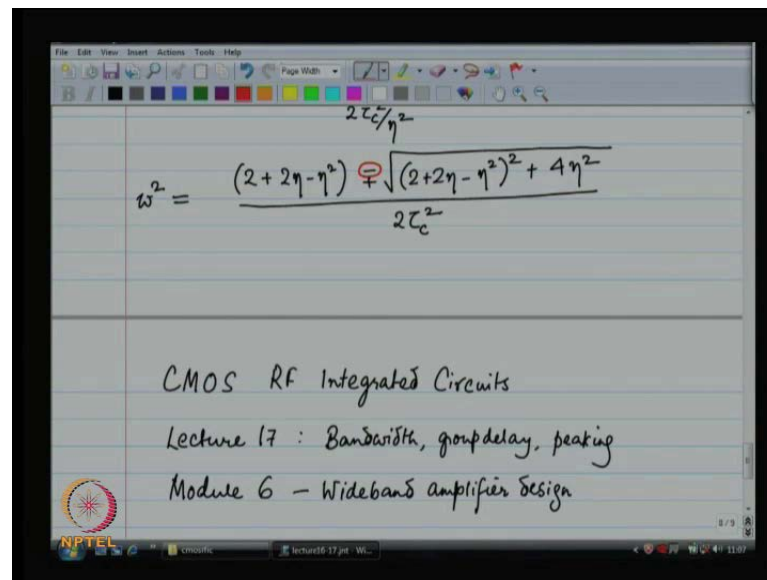 File Edit View Insert Actions Tools Help
Page Width
2τc²/η²
ω² = (2 + 2η - η²) ∓ √((2+2η - η²)² + 4η²) / 2τc²
CMOS RF Integrated Circuits
Lecture 17 : Bandwidth, group delay, peaking
Module 6 - Wideband amplifier design
8/9
NPTEL
cmosific
lecture16-17.jnt - Wi...
11:07